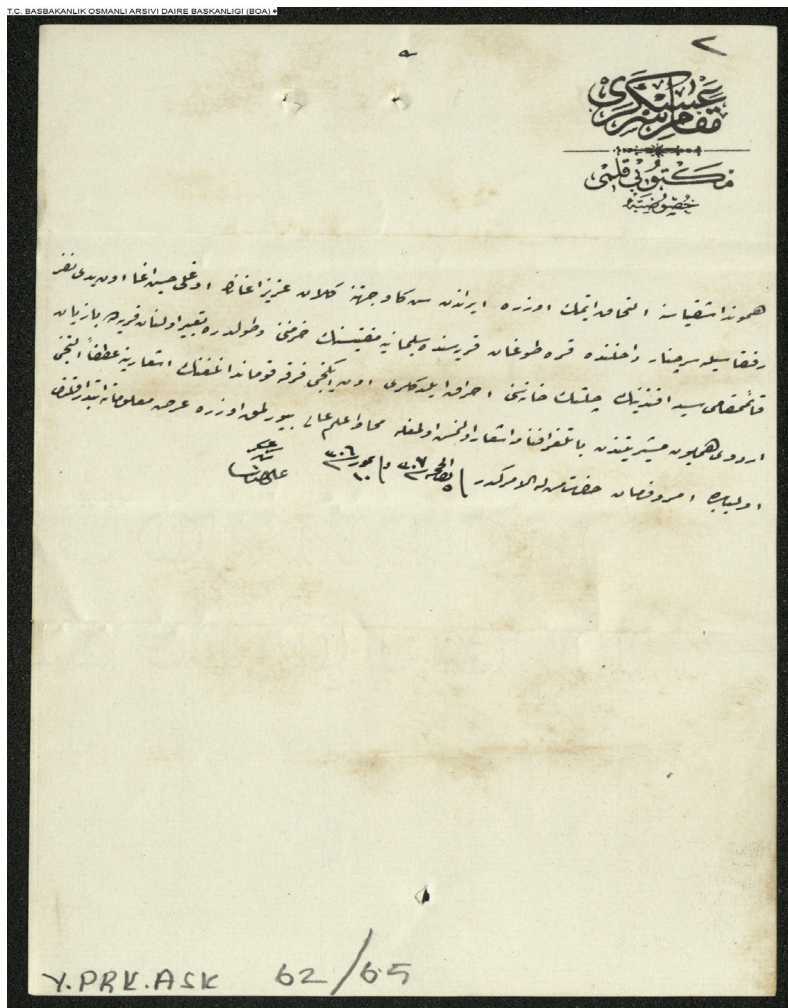 T.C. BASBAKANLIK OSMANLI ARSIVI DAIRE BASKANLIGI (BOA)
٢
مقام سر عسكرى
مكتوبى قلمى
هموند اشقياسنه التحاق ايتمك اوزره ايراندن كلان عزيز اغانك اوغلى حسين اغا اون يدى نفر
رفقاسيله سرچنار داخلنده قره طوغان قريه سنده سليمانيه مفتيسنك خرمنى و تعبير اولنان قريه ده بازيان
قائممقامى سيد افندينك چلتك خانه سنى احراق ايلدكلرى اون ايكنجى فرقه قوماندانلغنك اشعارينه عطفاً التنجى
اردوى همايون مشيريتندن با تلغراف اشعار اولنمش اولمغله محاط علم عالى بيورلمق اوزره عرض معلوماته ابتدار قلنمش
اولمغله امر و فرمان حضرت من له الامركدر ٣٠٧ ٣٠٦
Y.PRK.ASK 62/65